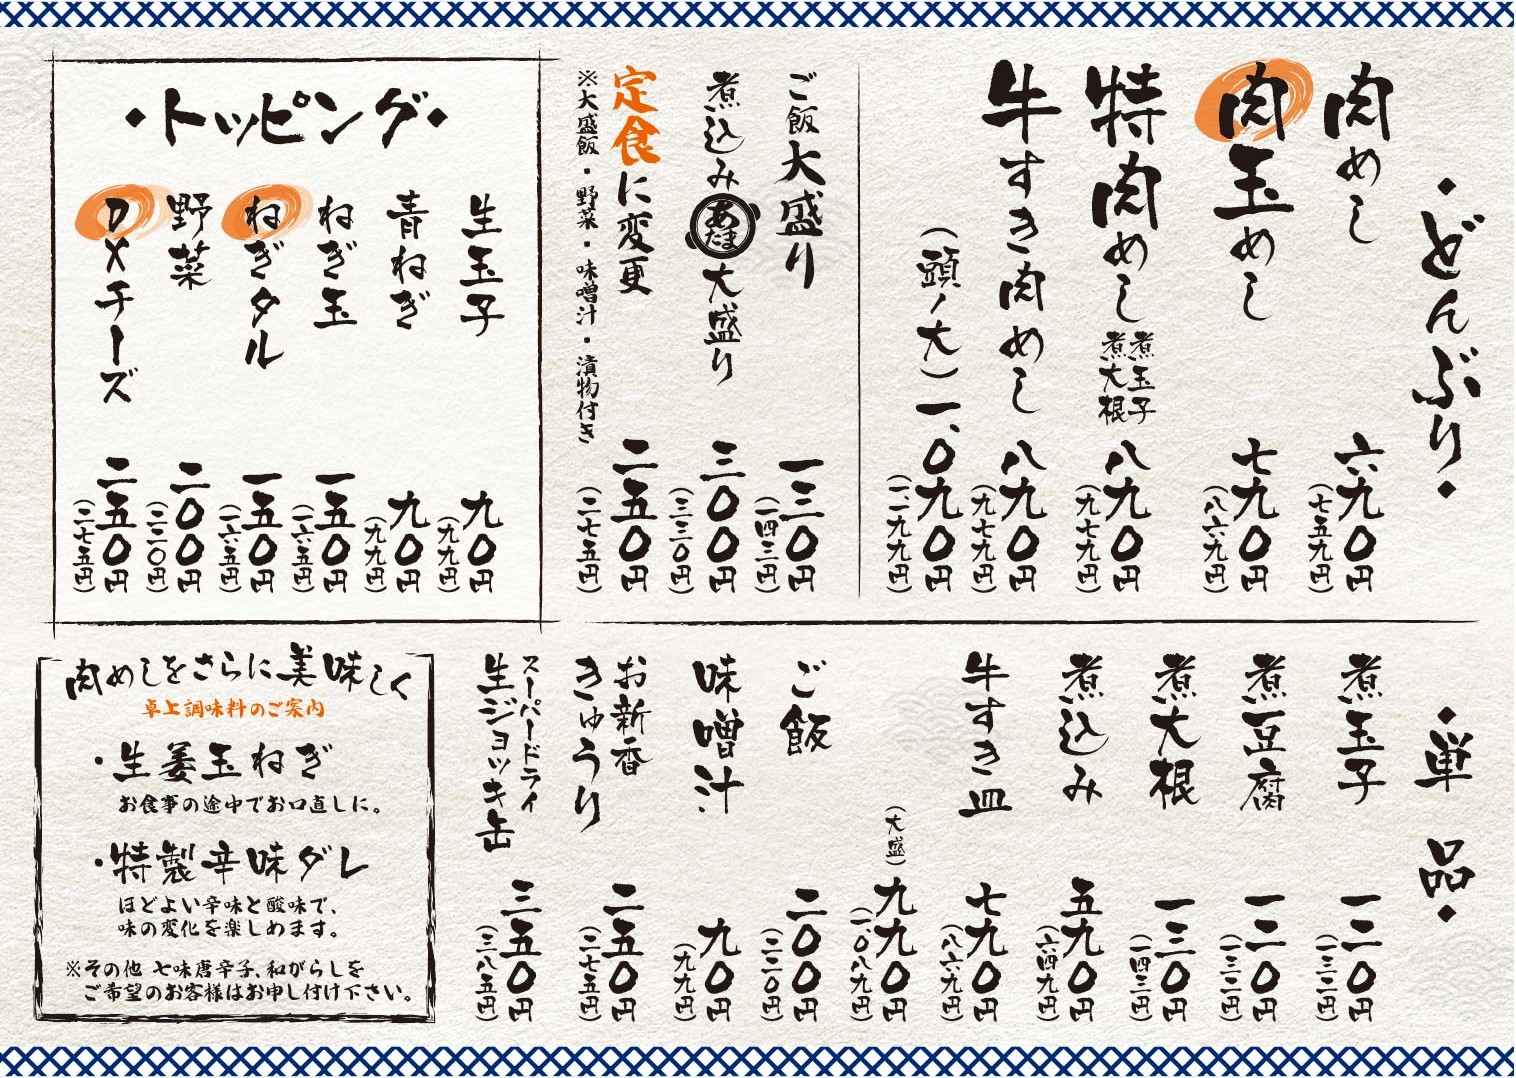 ・どんぶり・
肉めし 六九〇円
(七五九円)
肉玉めし 七九〇円
(八六九円)
特肉めし 煮玉子 煮大根 八九〇円
(九七九円)
牛すき肉めし 八九〇円
(九七九円)
(頭ノ大) 一、〇九〇円
(一、一九九円)
ご飯大盛り 一三〇円
(一四三円)
煮込みあたま大盛り 三〇〇円
(三三〇円)
定食に変更 二五〇円
(二七五円)
※大盛飯・野菜・味噌汁・漬物付き
・トッピング・
生玉子 九〇円
(九九円)
青ねぎ 九〇円
(九九円)
ねぎ玉 一五〇円
(一六五円)
ねぎタル 一五〇円
(一六五円)
野菜 二〇〇円
(二二〇円)
DXチーズ 二五〇円
(二七五円)
・単品・
煮玉子 一二〇円
(一三二円)
煮豆腐 一二〇円
(一三二円)
煮大根 一三〇円
(一四三円)
煮込み 五九〇円
(六四九円)
牛すき皿 七九〇円
(八六九円)
(大盛) 九九〇円
(一、〇八九円)
ご飯 二〇〇円
(二二〇円)
味噌汁 九〇円
(九九円)
お新香
きゅうり 二五〇円
(二七五円)
スーパードライ
生ジョッキ缶 三五〇円
(三八五円)
肉めしをさらに美味しく
卓上調味料のご案内
・生姜玉ねぎ
お食事の途中でお口直しに。
・特製辛味ダレ
ほどよい辛味と酸味で、
味の変化を楽しめます。
※その他 七味唐辛子、和がらしを
ご希望のお客様はお申し付け下さい。